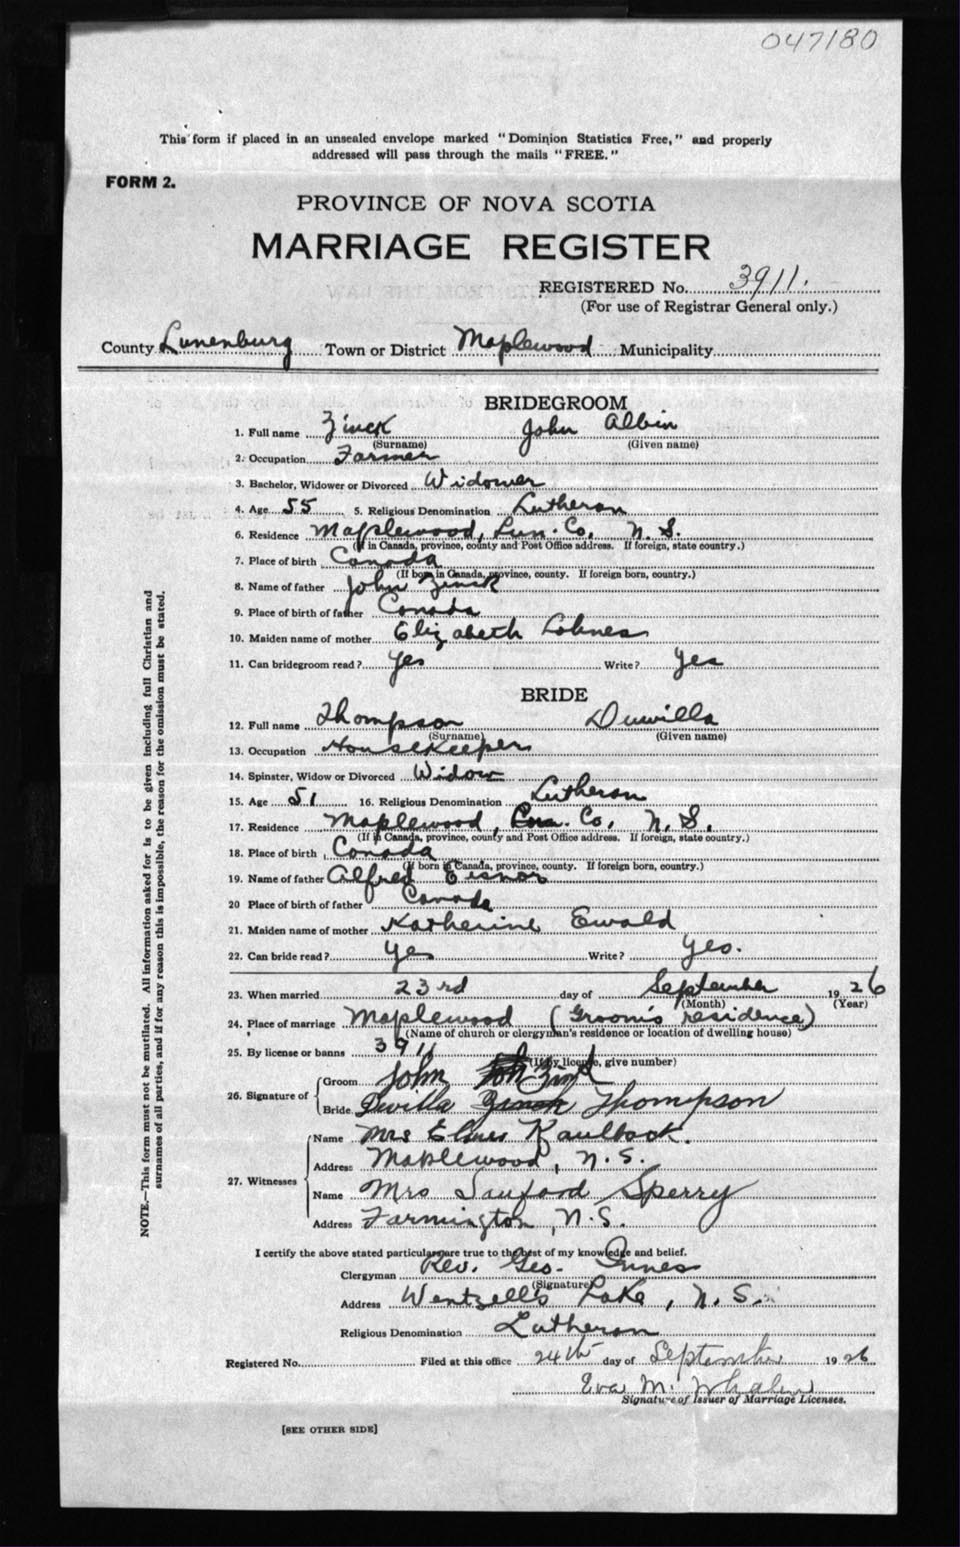 047180
This form if placed in an unsealed envelope marked "Dominion Statistics Free," and properly
addressed will pass through the mails "FREE."
FORM 2.
PROVINCE OF NOVA SCOTIA
MARRIAGE REGISTER
REGISTERED No. 3911.
(For use of Registrar General only.)
County Lunenburg Town or District Maplewood Municipality
BRIDEGROOM
1. Full name Zinck John Albin
(Surname) (Given name)
2. Occupation Farmer
3. Bachelor, Widower or Divorced Widower
4. Age 55 5. Religious Denomination Lutheran
6. Residence Maplewood, Lun. Co. N. S.
(If in Canada, province, county and Post Office address. If foreign, state country.)
7. Place of birth Canada
(If born in Canada, province, county. If foreign born, country.)
8. Name of father John Zinck
9. Place of birth of father Canada
10. Maiden name of mother Elizabeth Lohnes
11. Can bridegroom read? Yes Write? Yes
BRIDE
12. Full name Thompson Duwilla
(Surname) (Given name)
13. Occupation Housekeeper
14. Spinster, Widow or Divorced Widow
15. Age 51 16. Religious Denomination Lutheran
17. Residence Maplewood, Lun. Co. N. S.
(If in Canada, province, county and Post Office address. If foreign, state country.)
18. Place of birth Canada
(If born in Canada, province, county. If foreign born, country.)
19. Name of father Alfred Eisnor
20 Place of birth of father Canada
21. Maiden name of mother Katherine Ewald
22. Can bride read? Yes Write? Yes.
23. When married 23rd day of September 1926
(Month) (Year)
24. Place of marriage Maplewood (Groom's residence)
(Name of church or clergyman's residence or location of dwelling house)
25. By license or banns 3911
(If by license, give number)
26. Signature of
Groom John Zinck
Bride Dwilla Zinck Thompson
27. Witnesses
Name Mrs Elmer Kaulback.
Address Maplewood, N.S.
Name Mrs Sanford Sperry
Address Farmington, N.S.
I certify the above stated particulars are true to the best of my knowledge and belief.
Clergyman Rev. Geo. Innes
(Signature)
Address Wentzell's Lake, N. S.
Religious Denomination Lutheran
Registered No. Filed at this office 24th day of September 1926
Eva M. Whalen
Signature of Issuer of Marriage Licenses.
[SEE OTHER SIDE]
NOTE.—This form must not be mutilated. All information asked for is to be given including full Christian and
surnames of all parties, and if for any reason this is impossible, the reason for the omission must be stated.